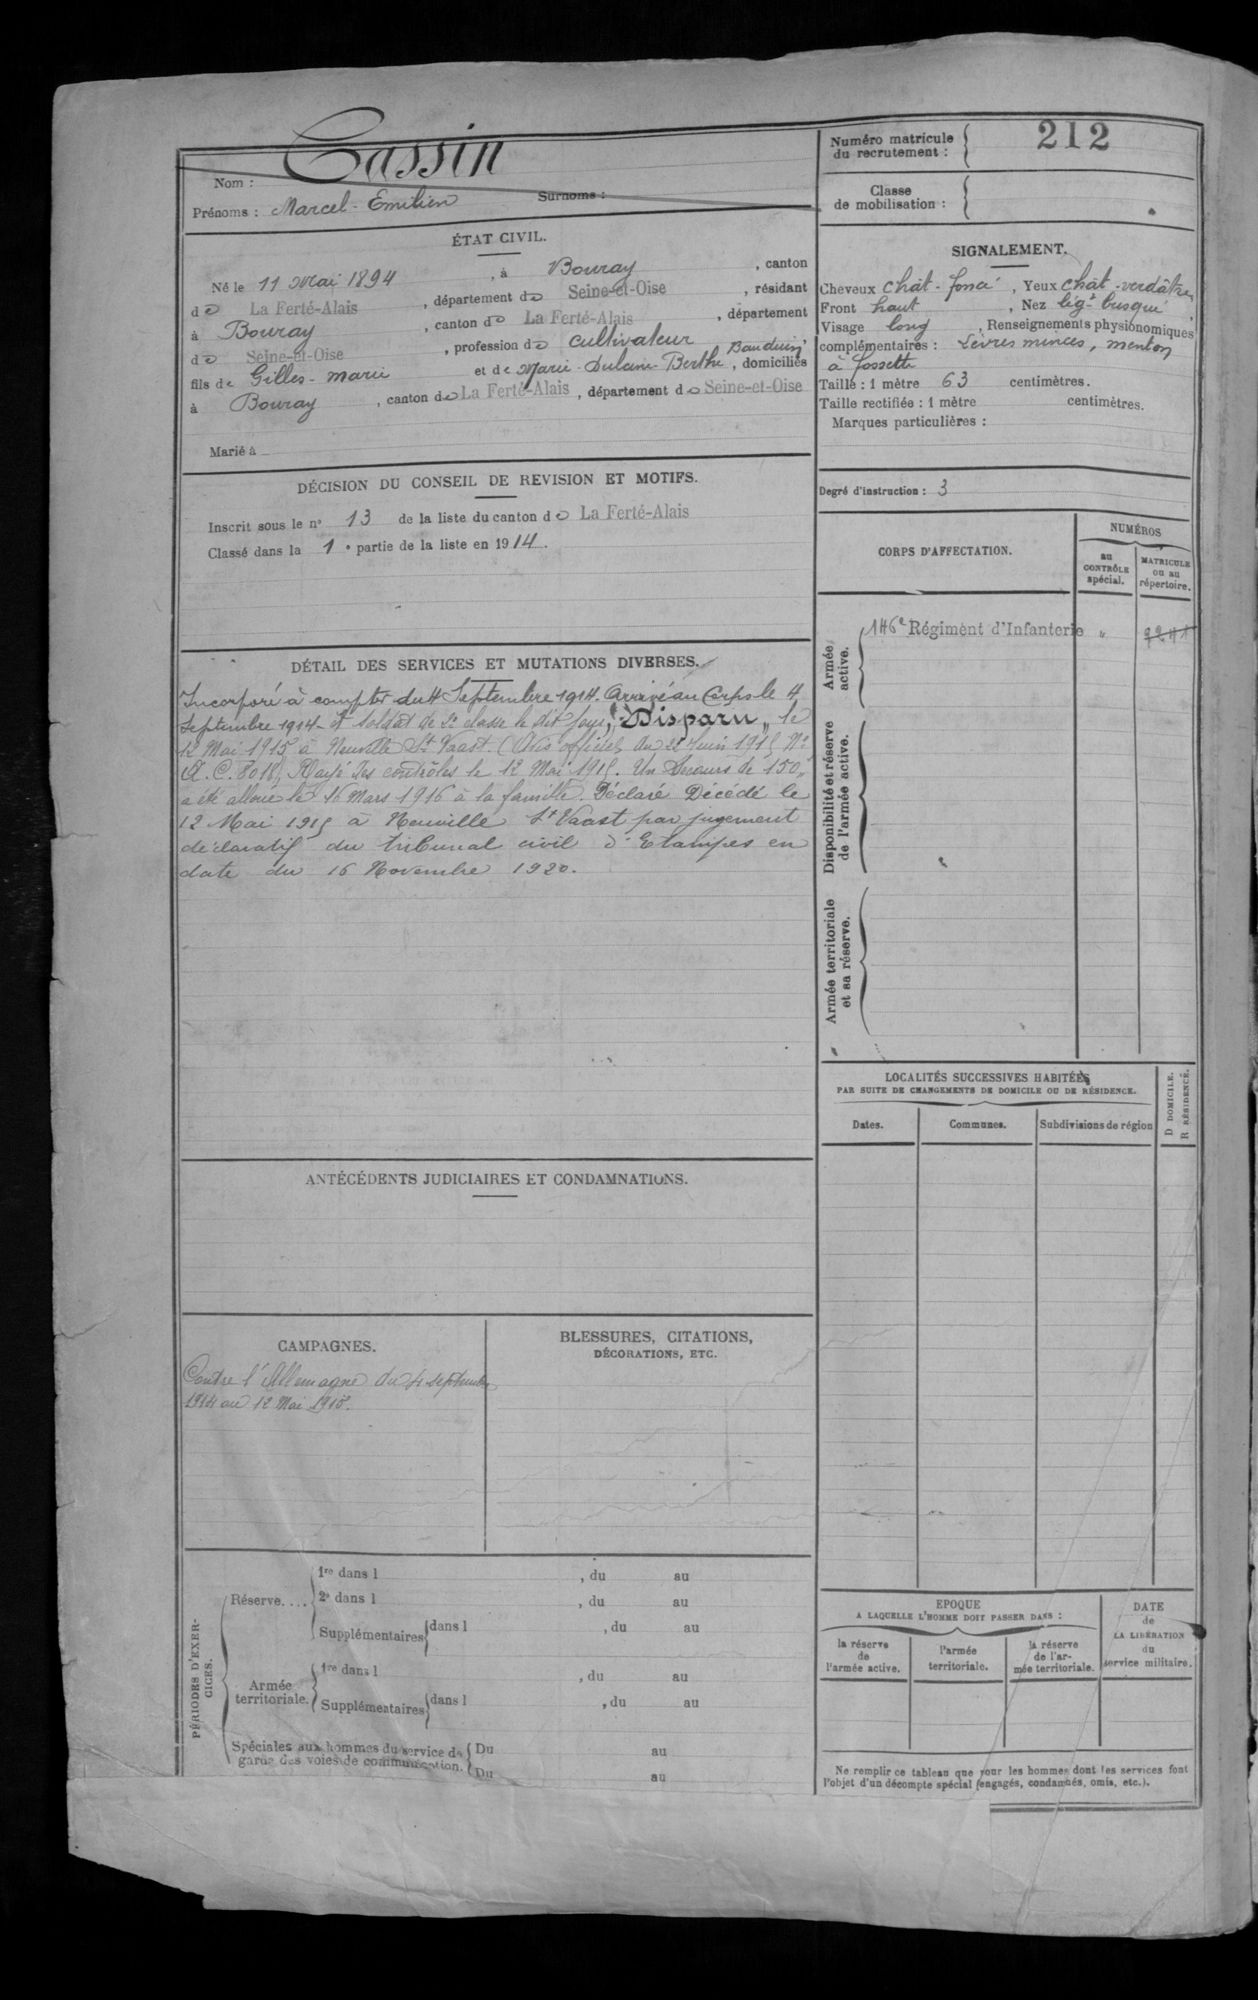 Nom : Cassin
Prénoms : Marcel-Emilien Surnoms :
ÉTAT CIVIL.
Né le 11 Mai 1894, à Bouray, canton
de La Ferté-Alais, département de Seine-et-Oise, résidant
à Bouray, canton de La Ferté-Alais, département
de Seine-et-Oise, profession de cultivateur
fils de Gilles-Marie et de Marie Berthe Bauduin, domiciliés
à Bouray, canton de La Ferté-Alais, département de Seine-et-Oise
Marié à
DÉCISION DU CONSEIL DE REVISION ET MOTIFS.
Inscrit sous le n° 13 de la liste du canton de La Ferté-Alais
Classé dans la 1e partie de la liste en 1914.
DÉTAIL DES SERVICES ET MUTATIONS DIVERSES.
Incorporé à compter du 4 Septembre 1914. Arrivé au Corps le 4
Septembre 1914 et soldat de 2e classe le dit jour, "Disparu" le
12 Mai 1915 à Neuville St Vaast. (Avis officiel du 22 Juin 1915 N°
8018) Rayé des contrôles le 12 Mai 1915. Un Secours de 150
a été alloué le 16 Mars 1916 à la famille. Déclaré Décédé le
12 Mai 1915 à Neuville St Vaast par jugement
déclaratif du tribunal civil d'Etampes en
date du 16 Novembre 1920.
ANTÉCÉDENTS JUDICIAIRES ET CONDAMNATIONS.
CAMPAGNES.
Contre l'Allemagne du 4 septembre
1914 au 12 Mai 1915.
BLESSURES, CITATIONS,
DÉCORATIONS, ETC.
PÉRIODES D'EXERCICES.
Réserve....
1re dans l , du au
2e dans l , du au
Supplémentaires dans l , du au
Armée
territoriale.
1re dans l , du au
Supplémentaires dans l , du au
Spéciales aux hommes du service de
garde des voies de communication.
Du au
Du au
Numéro matricule
du recrutement :
212
Classe
de mobilisation :
SIGNALEMENT.
Cheveux chât-foncé, Yeux chât-verdâtre,
Front haut, Nez légt busqué,
Visage long, Renseignements physionomiques
complémentaires : Lèvres minces, menton
à fossette
Taille : 1 mètre 63 centimètres.
Taille rectifiée : 1 mètre centimètres.
Marques particulières :
Degré d'instruction : 3
CORPS D'AFFECTATION.
NUMÉROS
au
CONTRÔLE
spécial.
MATRICULE
ou au
répertoire.
Armée
active.
146e Régiment d'Infanterie "
Disponibilité et réserve
de l'armée active.
Armée territoriale
et sa réserve.
LOCALITÉS SUCCESSIVES HABITÉES
PAR SUITE DE CHANGEMENTS DE DOMICILE OU DE RÉSIDENCE.
Dates.
Communes.
Subdivisions de région
D DOMICILE.
R RÉSIDENCE.
EPOQUE
A LAQUELLE L'HOMME DOIT PASSER DANS :
la réserve
de
l'armée active.
l'armée
territoriale.
la réserve
de l'ar-
mée territoriale.
DATE
de
LA LIBÉRATION
du
service militaire.
Ne remplir ce tableau que pour les hommes dont les services font
l'objet d'un décompte spécial (engagés, condamnés, omis, etc.).